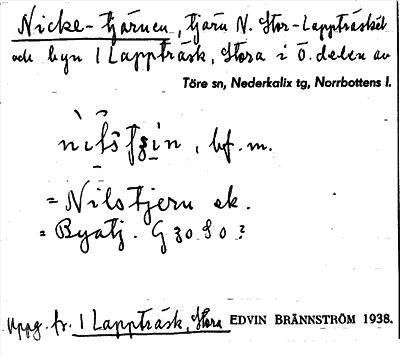 Nicke-tjärnen, tjärn N. Stor-Lappträsket
och byn 1 Lappträsk, Stora i Ö. delen av
Töre sn, Nederkalix tg, Norrbottens l.
bf. m.
= Nilstjern ek.
= Byatj. G 30 S 0 ?
Uppg. fr. 1 Lappträsk, Stora EDVIN BRÄNNSTRÖM 1938.